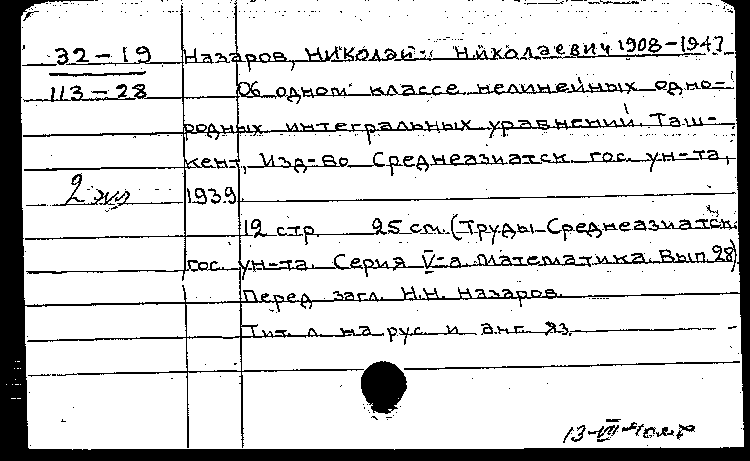 32-19 Назаров, Николай Николаевич 1908-1947
113-28 Об одном классе нелинейных одно-
родных интегральных уравнений. Таш-
кент, Изд-во Среднеазиатск. гос. ун-та,
2 экз 1939.
12 стр. 25 см. (Труды Среднеазиатск.
гос. ун-та. Серия V-а. Математика. Вып. 28)
Перед загл. Н.Н. Назаров.
Тит. л. на рус. и анг. яз.
13-VIII-40